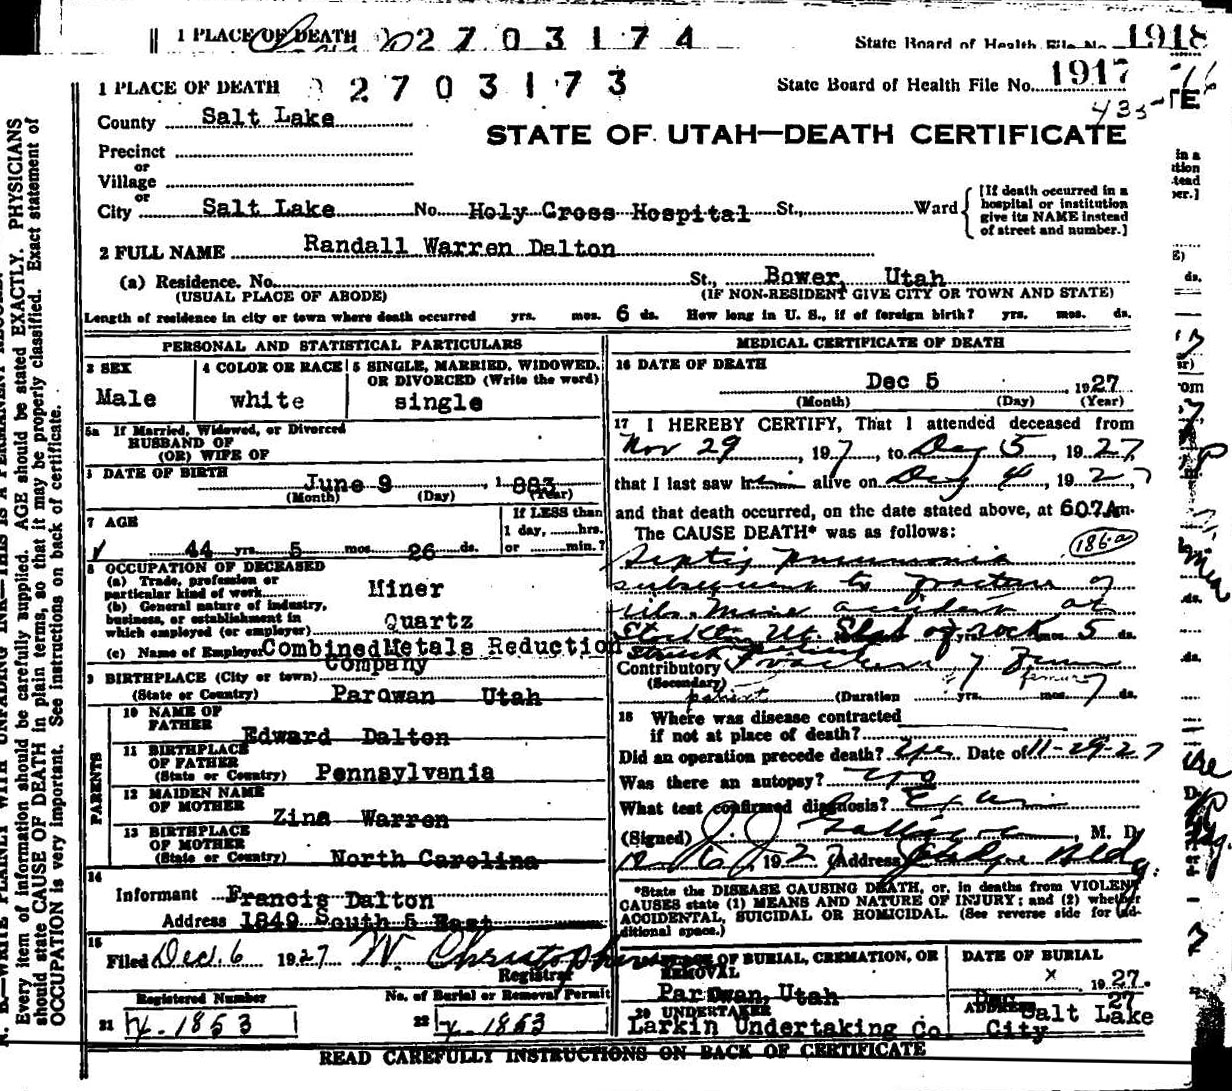 1 PLACE OF DEATH 2703174 State Board of Health File No. 1918
1 PLACE OF DEATH 2703173 State Board of Health File No. 1917
435-
County Salt Lake
STATE OF UTAH—DEATH CERTIFICATE
Precinct
or
Village
or
City Salt Lake No. Holy Cross Hospital St., Ward
[If death occurred in a
hospital or institution
give its NAME instead
of street and number.]
2 FULL NAME Randall Warren Dalton
(a) Residence. No. St., Bower, Utah
(USUAL PLACE OF ABODE) (IF NON-RESIDENT GIVE CITY OR TOWN AND STATE)
Length of residence in city or town where death occurred yrs. mos. 6 ds. How long in U. S., if of foreign birth? yrs. mos. ds.
PERSONAL AND STATISTICAL PARTICULARS
3 SEX
Male
4 COLOR OR RACE
white
5 SINGLE, MARRIED, WIDOWED,
OR DIVORCED (Write the word)
single
5a If Married, Widowed, or Divorced
HUSBAND OF
(OR) WIFE OF
DATE OF BIRTH
June 9 1 883
(Month) (Day) (Year)
7 AGE
44 yrs. 5 mos. 26 ds.
If LESS than
1 day, hrs.
or min.?
8 OCCUPATION OF DECEASED
(a) Trade, profession or
particular kind of work Miner
(b) General nature of industry,
business, or establishment in
which employed (or employer) Quartz
(c) Name of Employer Combined Metals Reduction
Company
9 BIRTHPLACE (City or town)
(State or Country) Parowan Utah
PARENTS
10 NAME OF
FATHER Edward Dalton
11 BIRTHPLACE
OF FATHER
(State or Country) Pennsylvania
12 MAIDEN NAME
OF MOTHER Zina Warren
13 BIRTHPLACE
OF MOTHER
(State or Country) North Carolina
14
Informant Francis Dalton
Address 1849 South 5 East
15
Filed Dec. 6 1927 W. Christopherson
Registrar
Registered Number
21 X-1853
No. of Burial or Removal Permit
22 X-1853
MEDICAL CERTIFICATE OF DEATH
16 DATE OF DEATH
Dec 5 1927
(Month) (Day) (Year)
17 I HEREBY CERTIFY, That I attended deceased from
Nov 29, 197, to Dec 5 1927
that I last saw him alive on Dec 4, 1927
and that death occurred, on the date stated above, at 607A m.
The CAUSE DEATH* was as follows:
Septic pneumonia 186a
subsequent to fracture of
ribs. Mine accident at
Stockton Ut. Slab of rock yrs. mos. 5 ds.
struck patient
Contributory Fracture of Femur
(Secondary) femur
patient (Duration yrs. mos. 7 ds.
18 Where was disease contracted
if not at place of death?
Did an operation precede death? Yes Date of 11-29-27
Was there an autopsy?
What test confirmed diagnosis?
(Signed) , M. D.
1927 (Address Judge Bldg.
*State the DISEASE CAUSING DEATH, or, in deaths from VIOLENT
CAUSES state (1) MEANS AND NATURE OF INJURY; and (2) whether
ACCIDENTAL, SUICIDAL OR HOMICIDAL. (See reverse side for additional space.)
PLACE OF BURIAL, CREMATION, OR
REMOVAL
Parowan, Utah
DATE OF BURIAL
x 1927.
20 UNDERTAKER
Larkin Undertaking Co
ADDRESS Salt Lake
City
READ CAREFULLY INSTRUCTIONS ON BACK OF CERTIFICATE
N. B.—WRITE PLAINLY WITH UNFADING INK—THIS IS A PERMANENT RECORD.
Every item of information should be carefully supplied. AGE should be stated EXACTLY. PHYSICIANS
should state CAUSE OF DEATH in plain terms, so that it may be properly classified. Exact statement of
OCCUPATION is very important. See instructions on back of certificate.